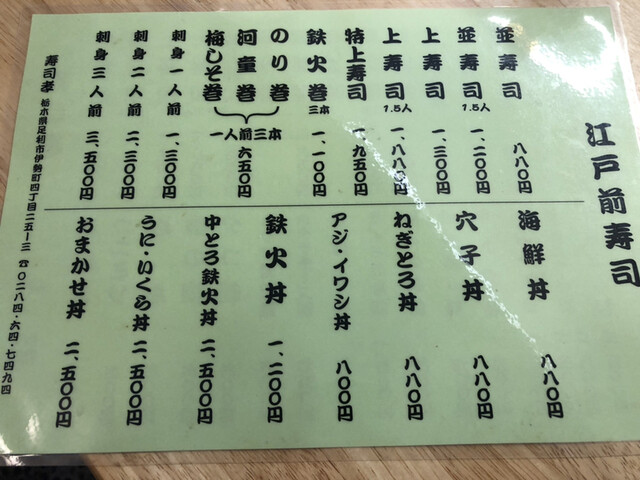 江戸前寿司
並寿司 八八〇円
並寿司 1.5人 一、二〇〇円
上寿司 一、三〇〇円
上寿司 1.5人 一、八八〇円
特上寿司 一、九五〇円
鉄火巻 三本 一、一〇〇円
のり巻
河童巻
梅しそ巻
一人前三本 六五〇円
刺身一人前 一、三〇〇円
刺身二人前 二、三〇〇円
刺身三人前 三、五〇〇円
海鮮丼 八八〇円
穴子丼 八八〇円
ねぎとろ丼 八八〇円
アジ・イワシ丼 八〇〇円
鉄火丼 一、二〇〇円
中とろ鉄火丼 二、五〇〇円
うに・いくら丼 二、五〇〇円
おまかせ丼 二、五〇〇円
寿司孝 栃木県足利市伊勢町四丁目二五ー三 ☎〇二八四・六四・七四九四